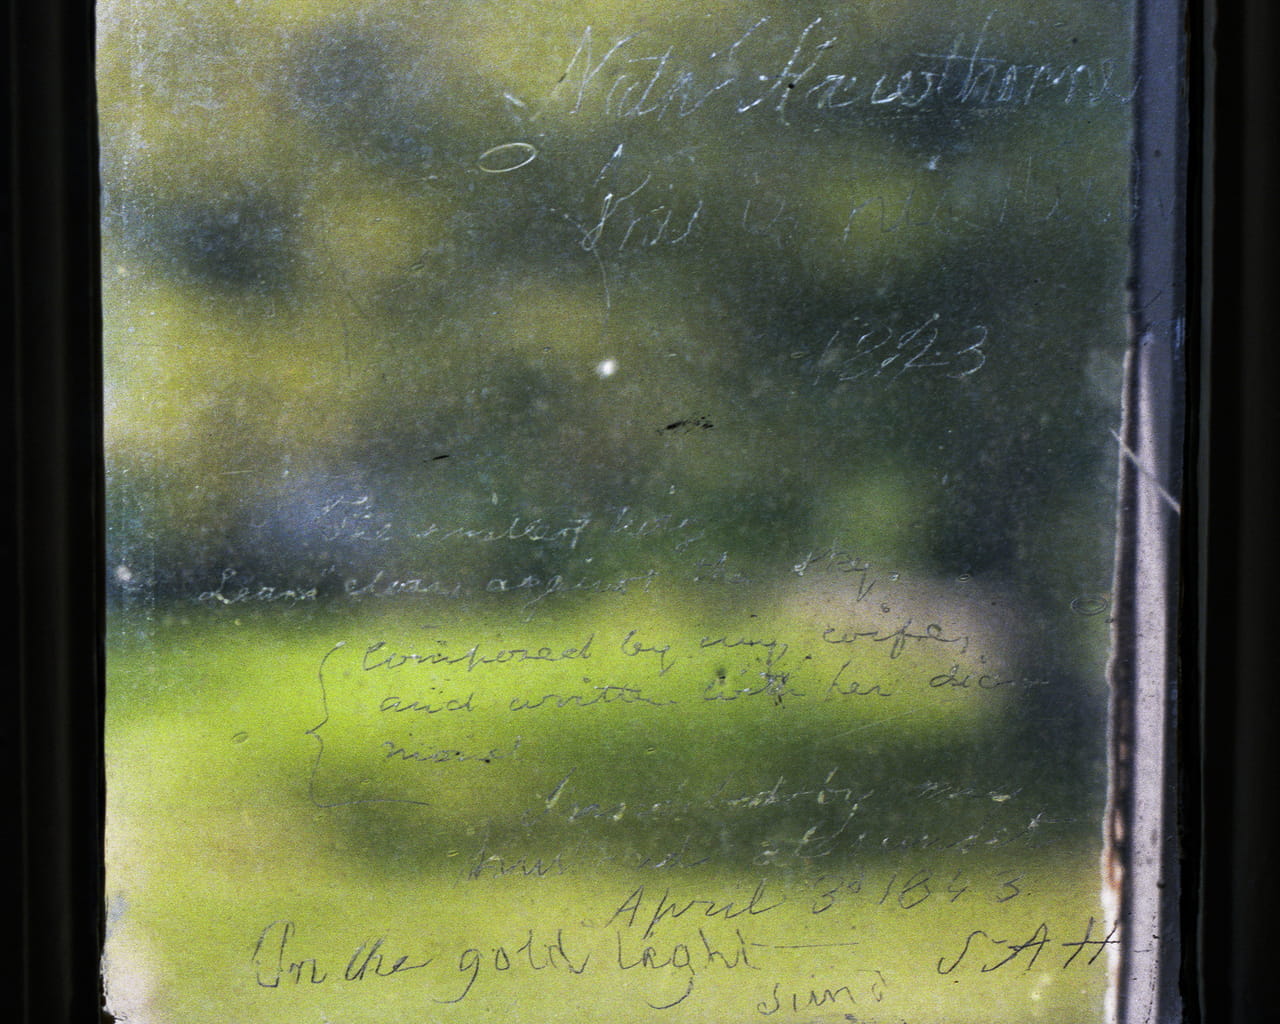 Nath' Hawthorne
This
1843
The smallest twig
Leans clear against the sky.
Composed by my wife,
and written with her dia
mond
Inscribed by my
husband at sunset
April 3d 1843.
In the gold light SAH